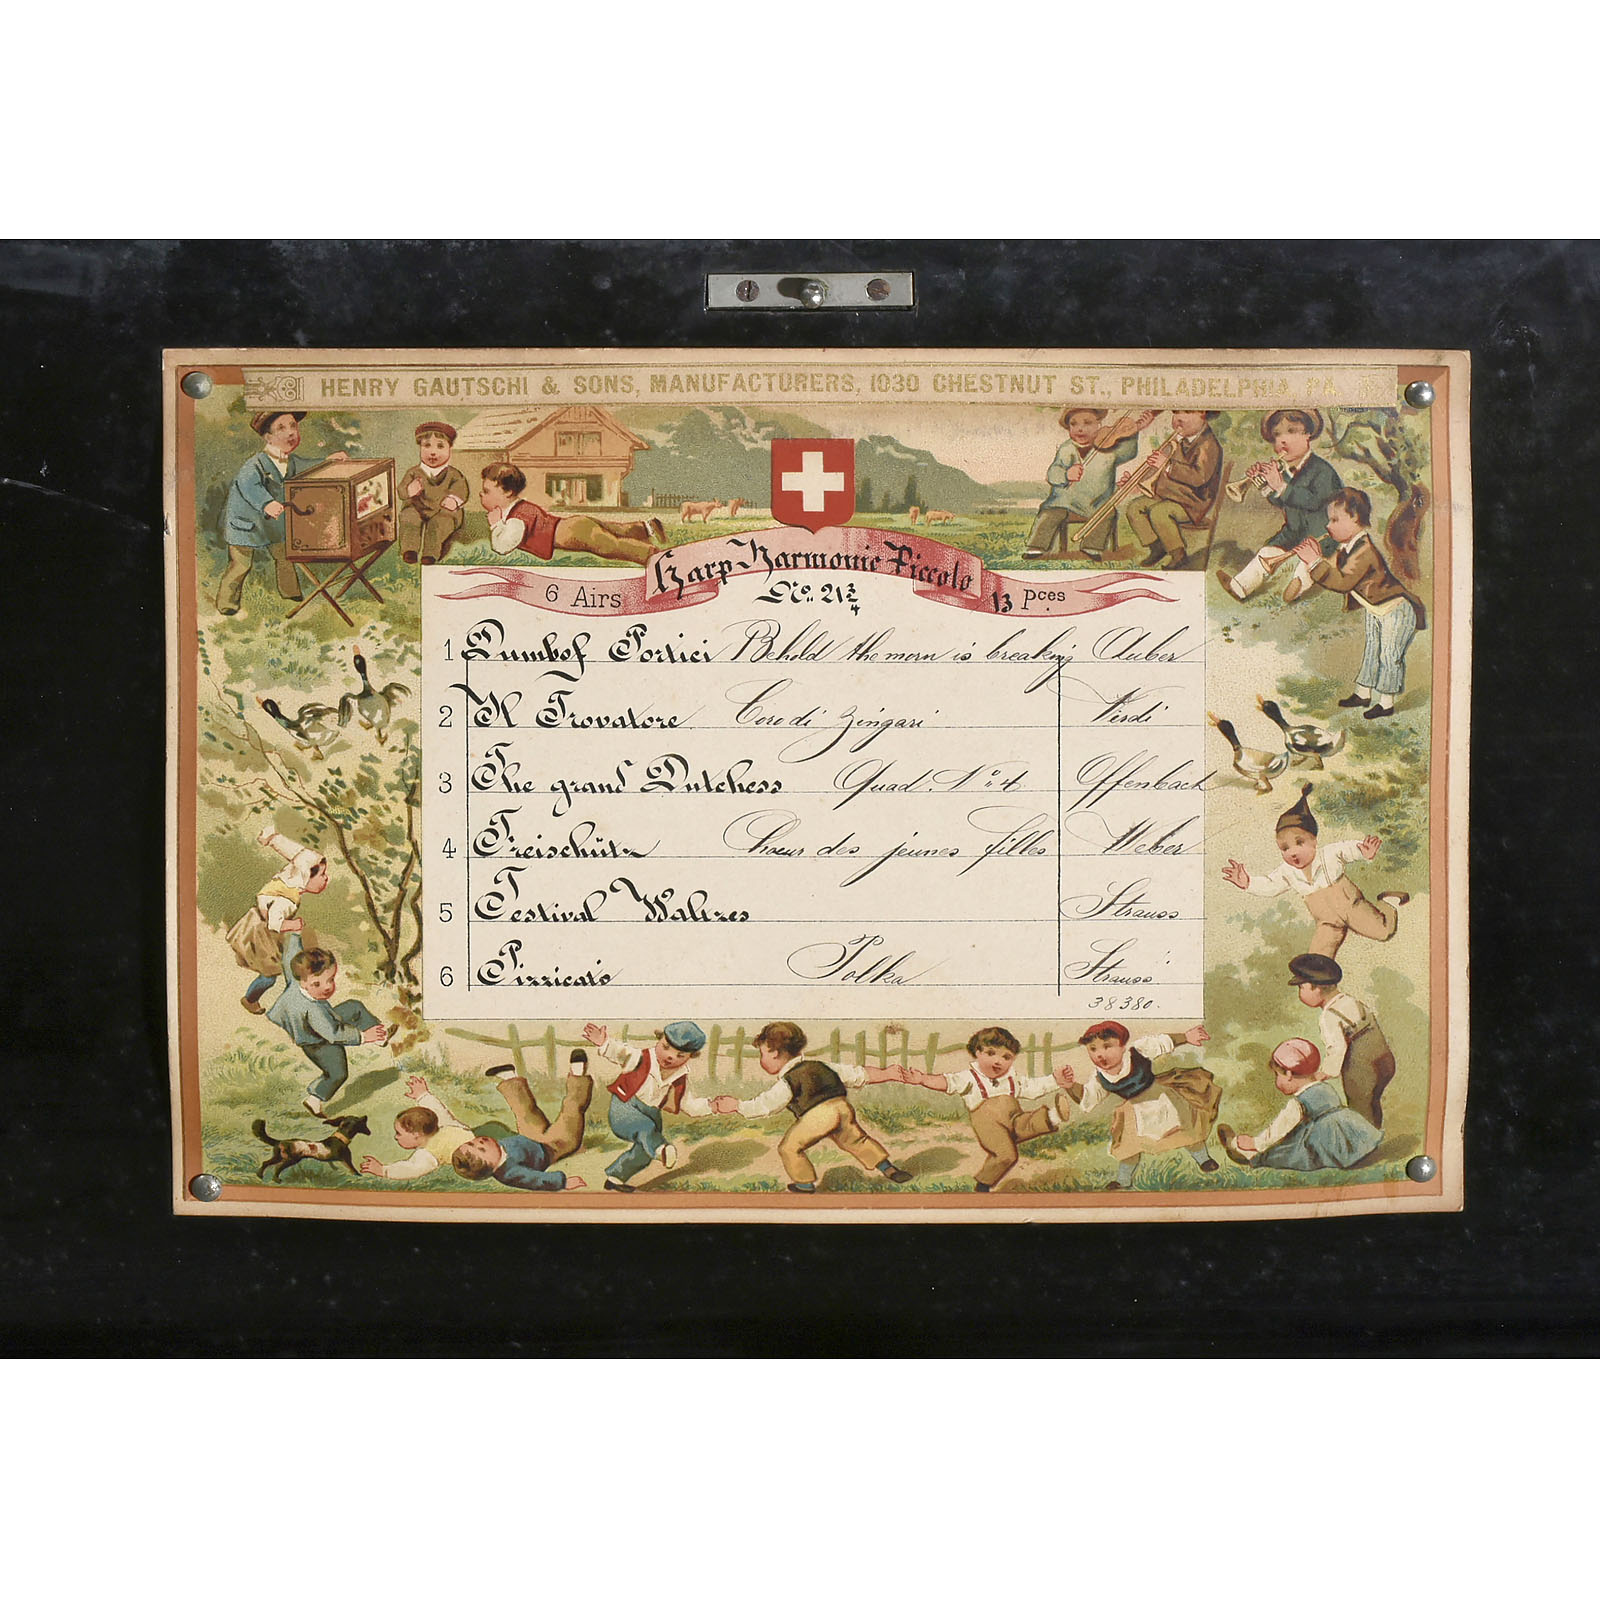 HENRY GAUTSCHI & SONS, MANUFACTURERS, 1030 CHESTNUT ST., PHILADELPHIA, PA.
Harp-Harmonic-Piccolo
6 Airs No. 21 3/4 13 Pces
1 Dumb of Portici Behold the morn is breaking Auber
2 Il Trovatore Coro di Zingari Verdi
3 The grand Dutchess Quad. No. 4 Offenbach
4 Freischütz Choeur des jeunes filles Weber
5 Festival Waltzes Strauss
6 Pizzicato Polka Strauss
38380.